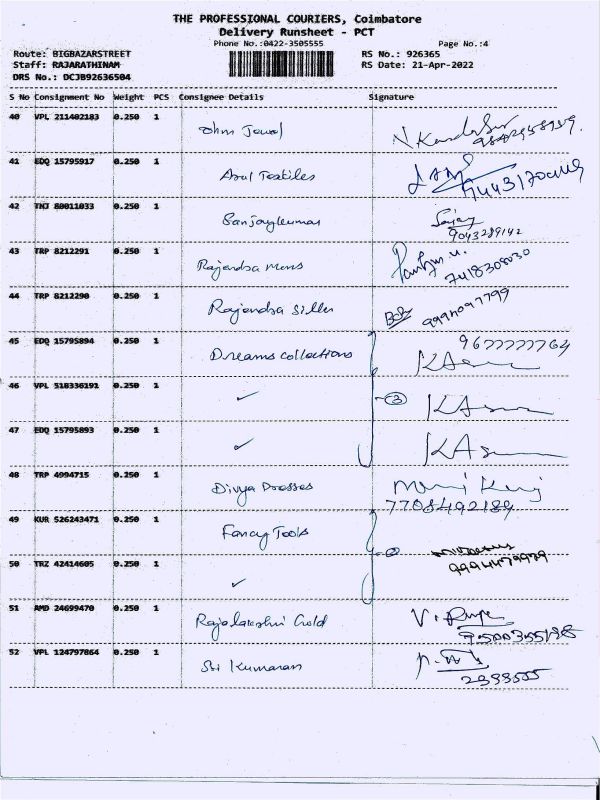 THE PROFESSIONAL COURIERS, Coimbatore
Delivery Runsheet - PCT
Phone No.:0422-3505555 Page No.:4
Route: BIGBAZARSTREET RS No.: 926365
Staff: RAJARATHINAM RS Date: 21-Apr-2022
DRS No.: DCJB92636504
S No Consignment No Weight PCS Consignee Details Signature
40 VPL 211402183 0.250 1 Ohm Jewel
41 EDQ 15795917 0.250 1 Arul Textiles
42 TNJ 80011033 0.250 1 Sanjaykumar Sanjay
9043289142
43 TRP 8212291 0.250 1 Rajendra mens
7418308030
44 TRP 8212290 0.250 1 Rajendra silks
9994097799
45 EDQ 15795894 0.250 1 Dreams collections 9677777764
46 VPL 518336191 0.250 1 ✓ 3
47 EDQ 15795893 0.250 1 ✓
48 TRP 4994715 0.250 1 Divya Dresses
7708492189
49 KUR 526243471 0.250 1 Fancy Tools
50 TRZ 42414605 0.250 1 ✓ 9994479979
51 AMD 24699470 0.250 1 Rajalakshmi Gold
9500355198
52 VPL 124797864 0.250 1 Sri Kumaran